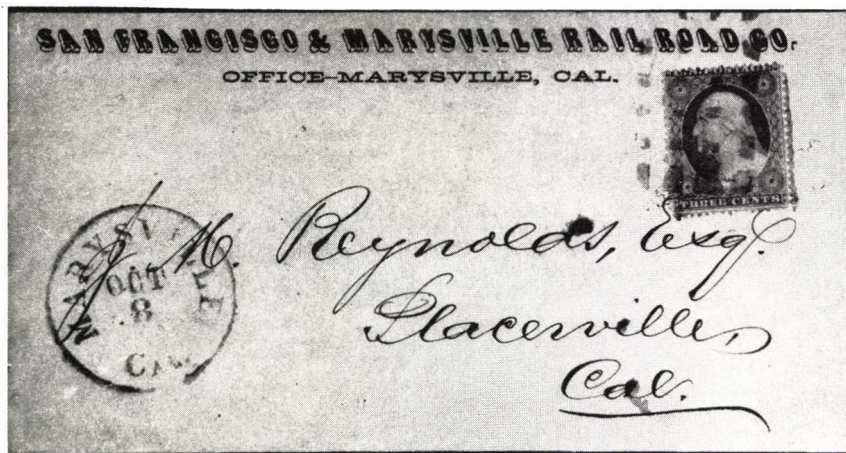 SAN FRANCISCO & MARYSVILLE RAIL ROAD CO.
OFFICE-MARYSVILLE, CAL.
THREE CENTS
MARYSVILLE
OCT
8
CAL.
M. Reynolds, Esq.
Placerville,
Cal.